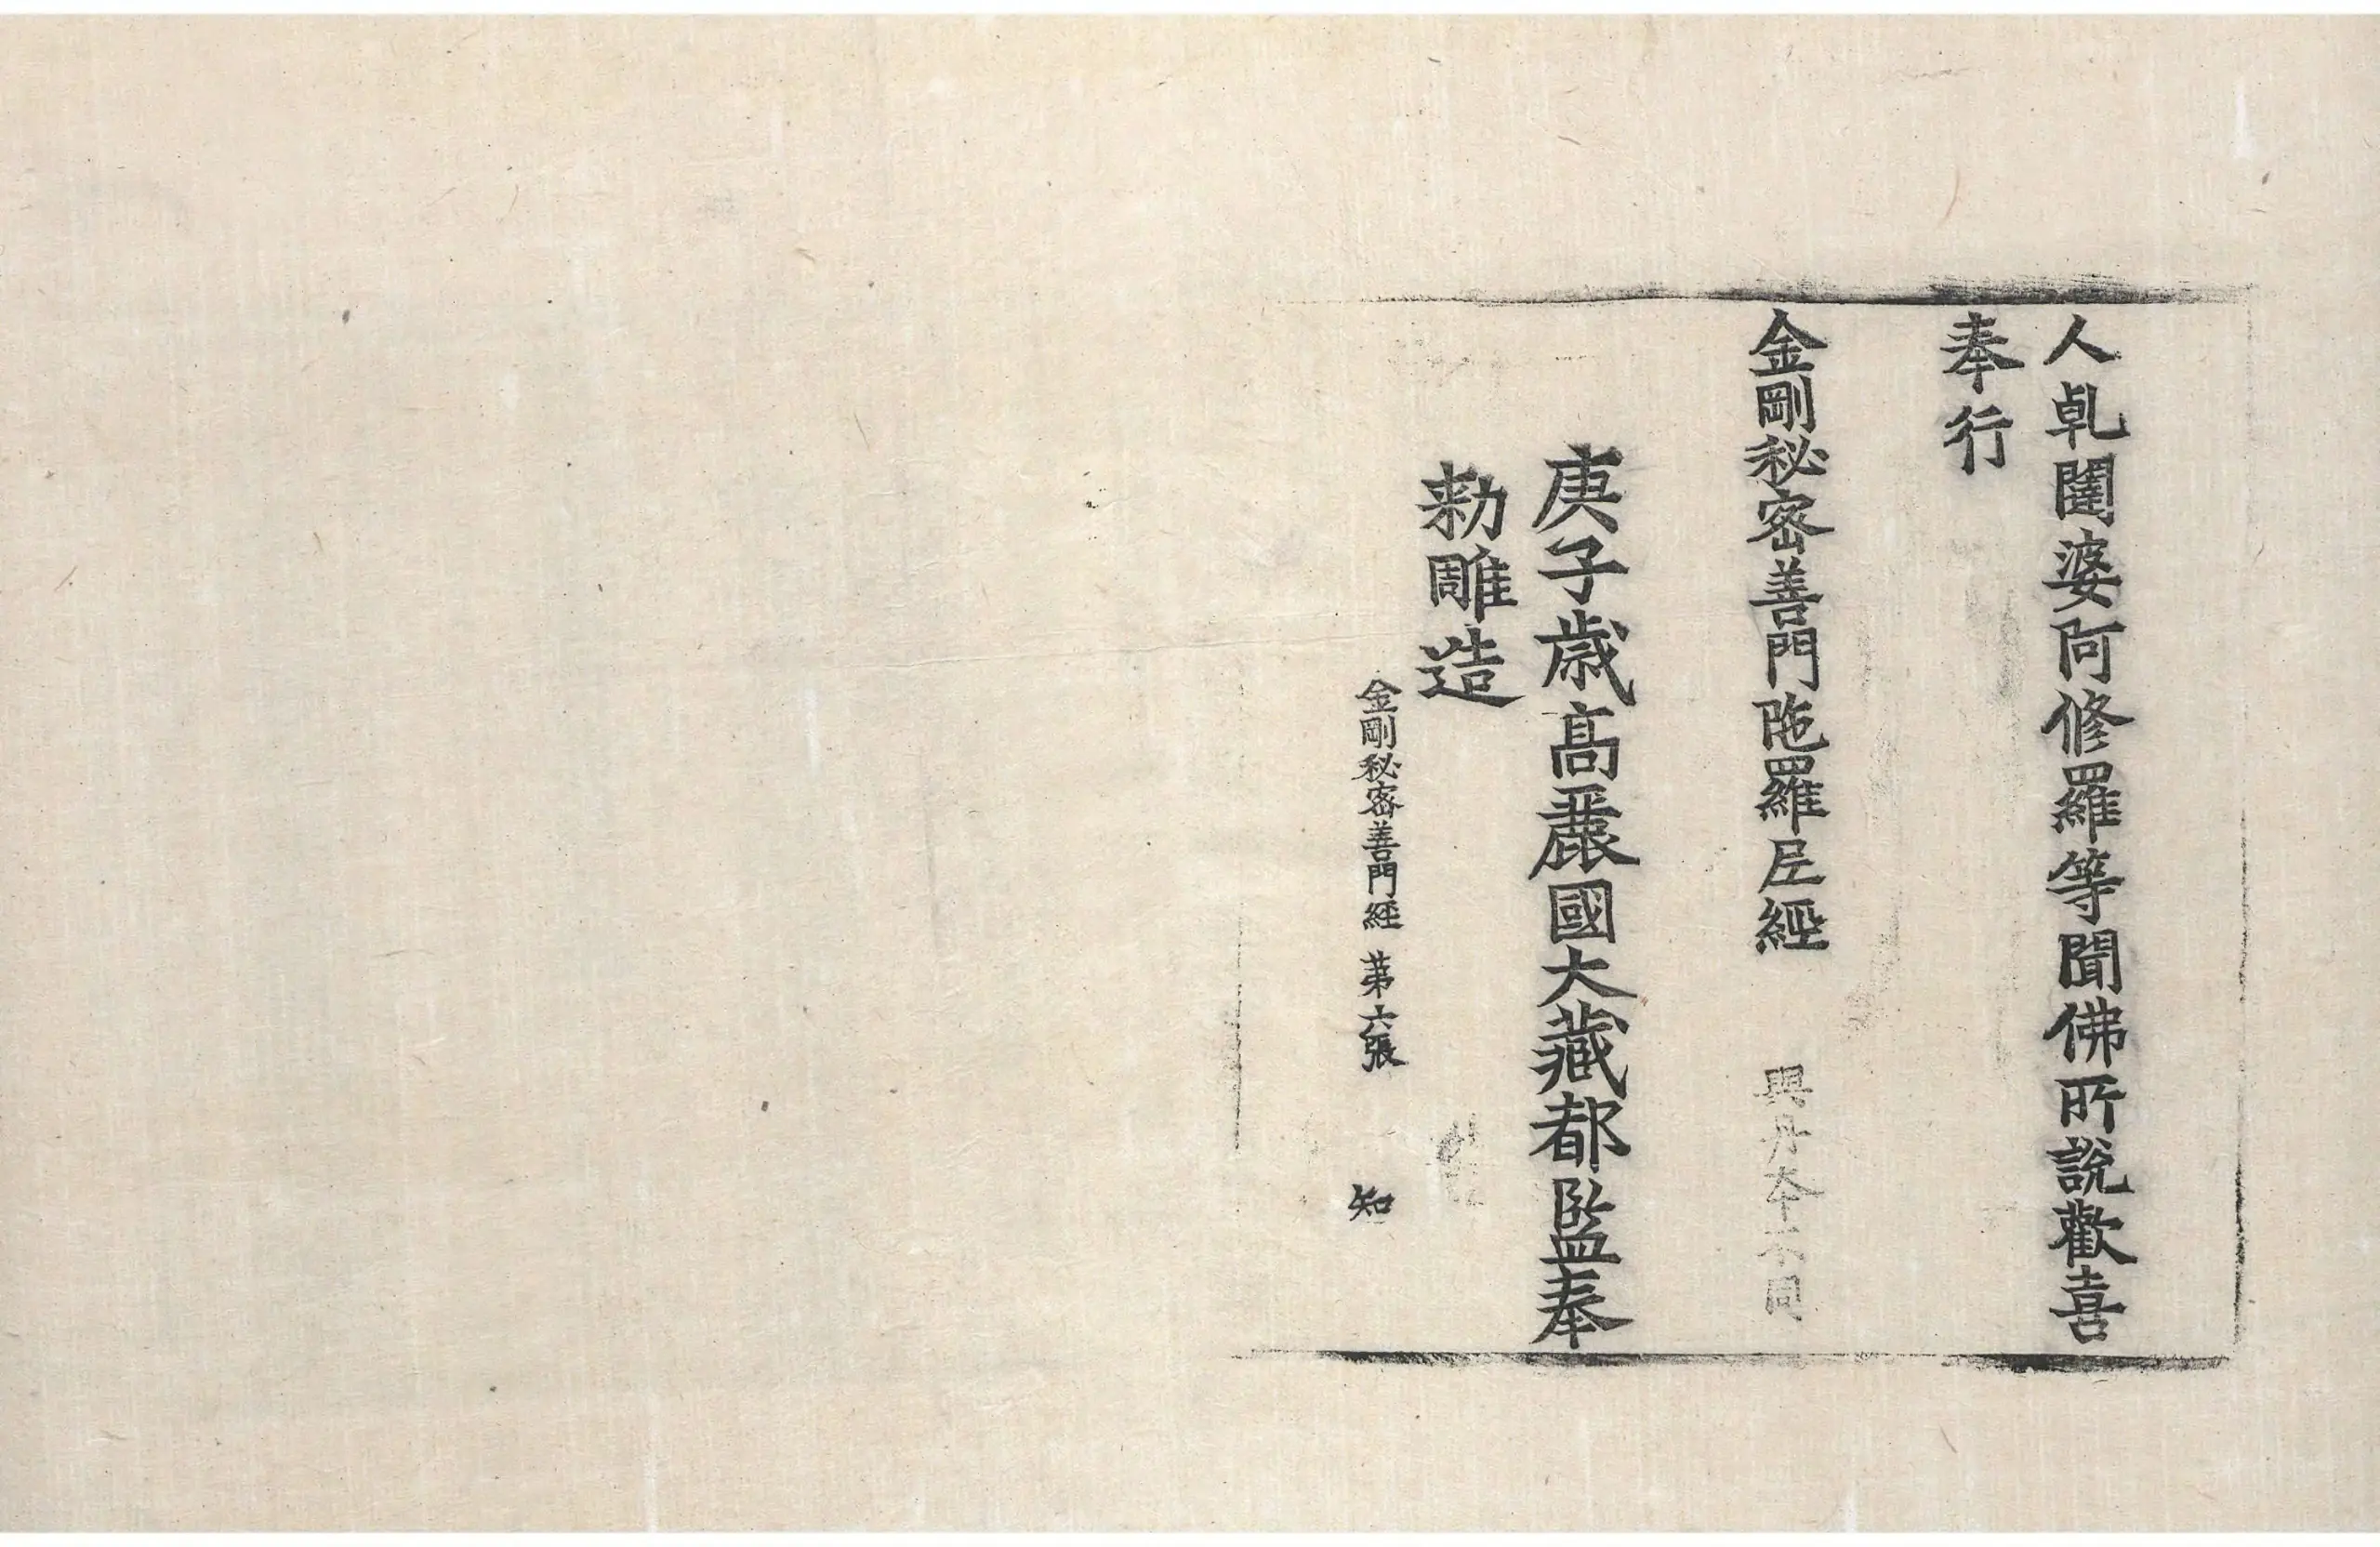 人乹闥婆阿修羅等聞佛所說歡喜
奉行
金剛秘密善門陁羅𡰱經 與丹本不同
庚子歳高麗國大藏都監奉
勑雕造
金剛秘密善門經 苐六張 知